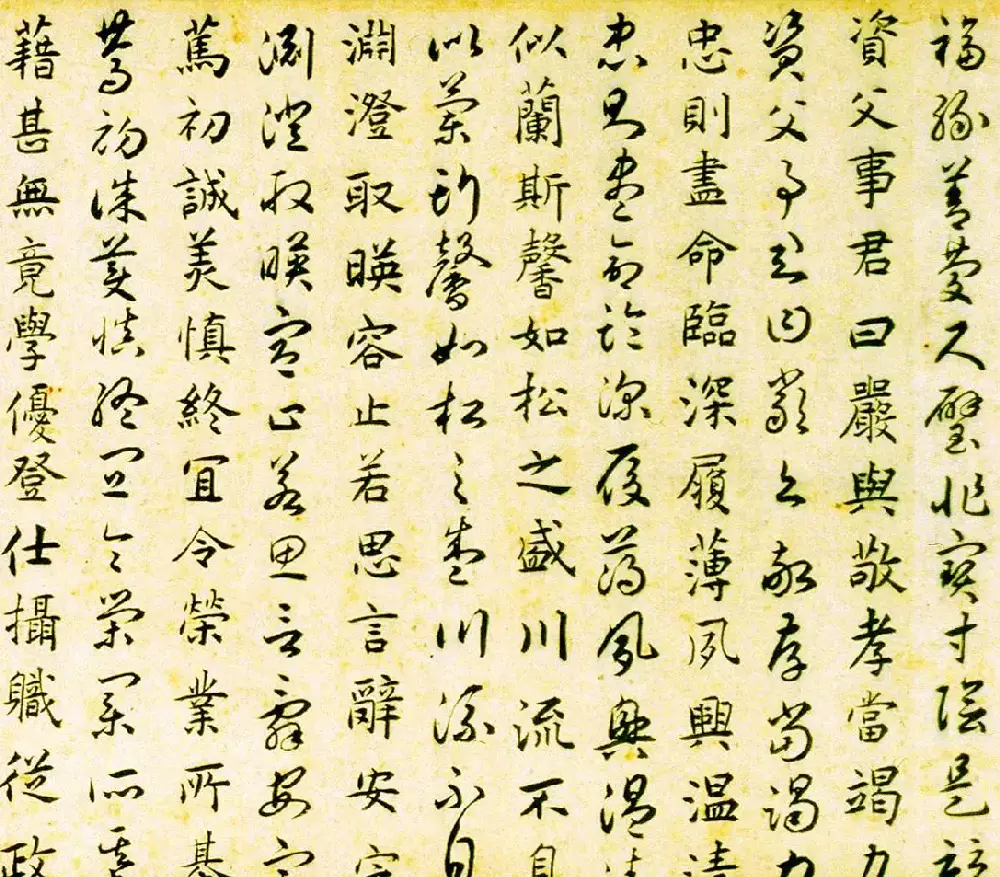 福緣善慶尺璧非寶寸陰是競
資父事君曰嚴與敬孝當竭力
資父事君曰嚴與敬孝當竭力
忠則盡命臨深履薄夙興温凊
忠則盡命臨深履薄夙興温凊
似蘭斯馨如松之盛川流不息
似蘭斯馨如松之盛川流不息
淵澄取暎容止若思言辭安定
淵澄取暎容止若思言辭安定
篤初誠美慎終宜令榮業所基
篤初誠美慎終宜令榮業所基
藉甚無竟學優登仕攝職從政